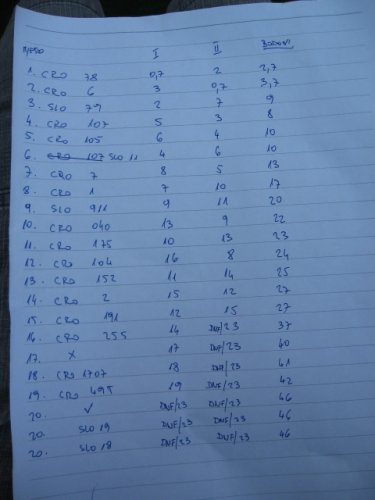 MJESTO I II BODOVI
1. CRO 78 0,7 2 2,7
2. CRO 6 3 0,7 3,7
3. SLO 79 2 7 9
4. CRO 107 5 3 8
5. CRO 105 6 4 10
6. CRO 107 SLO 11 4 6 10
7. CRO 7 8 5 13
8. CRO 1 7 10 17
9. SLO 911 9 11 20
10. CRO 040 13 9 22
11. CRO 175 10 13 23
12. CRO 104 16 8 24
13. CRO 152 11 14 25
14. CRO 2 15 12 27
15. CRO 191 12 15 27
16. CRO 255 14 DNF/23 37
17. X 17 DNF/23 40
18. CRO 1707 18 DNF/23 41
19. CRO 495 19 DNF/23 42
20. ✓ DNF/23 DNF/23 46
20. SLO 19 DNF/23 DNF/23 46
20. SLO 18 DNF/23 DNF/23 46